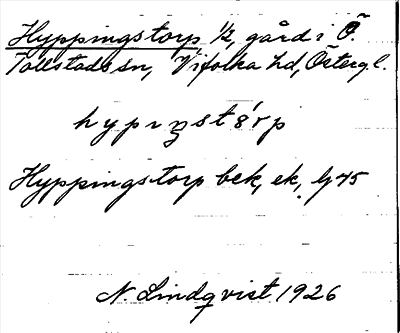 Hyppingstorp ½, gård i Ö.
Tollstads sn, Vifolka hd, Östergl.
hypıꞃst
Hyppingstorp bek, ek, lj 45
N. Lindqvist 1926